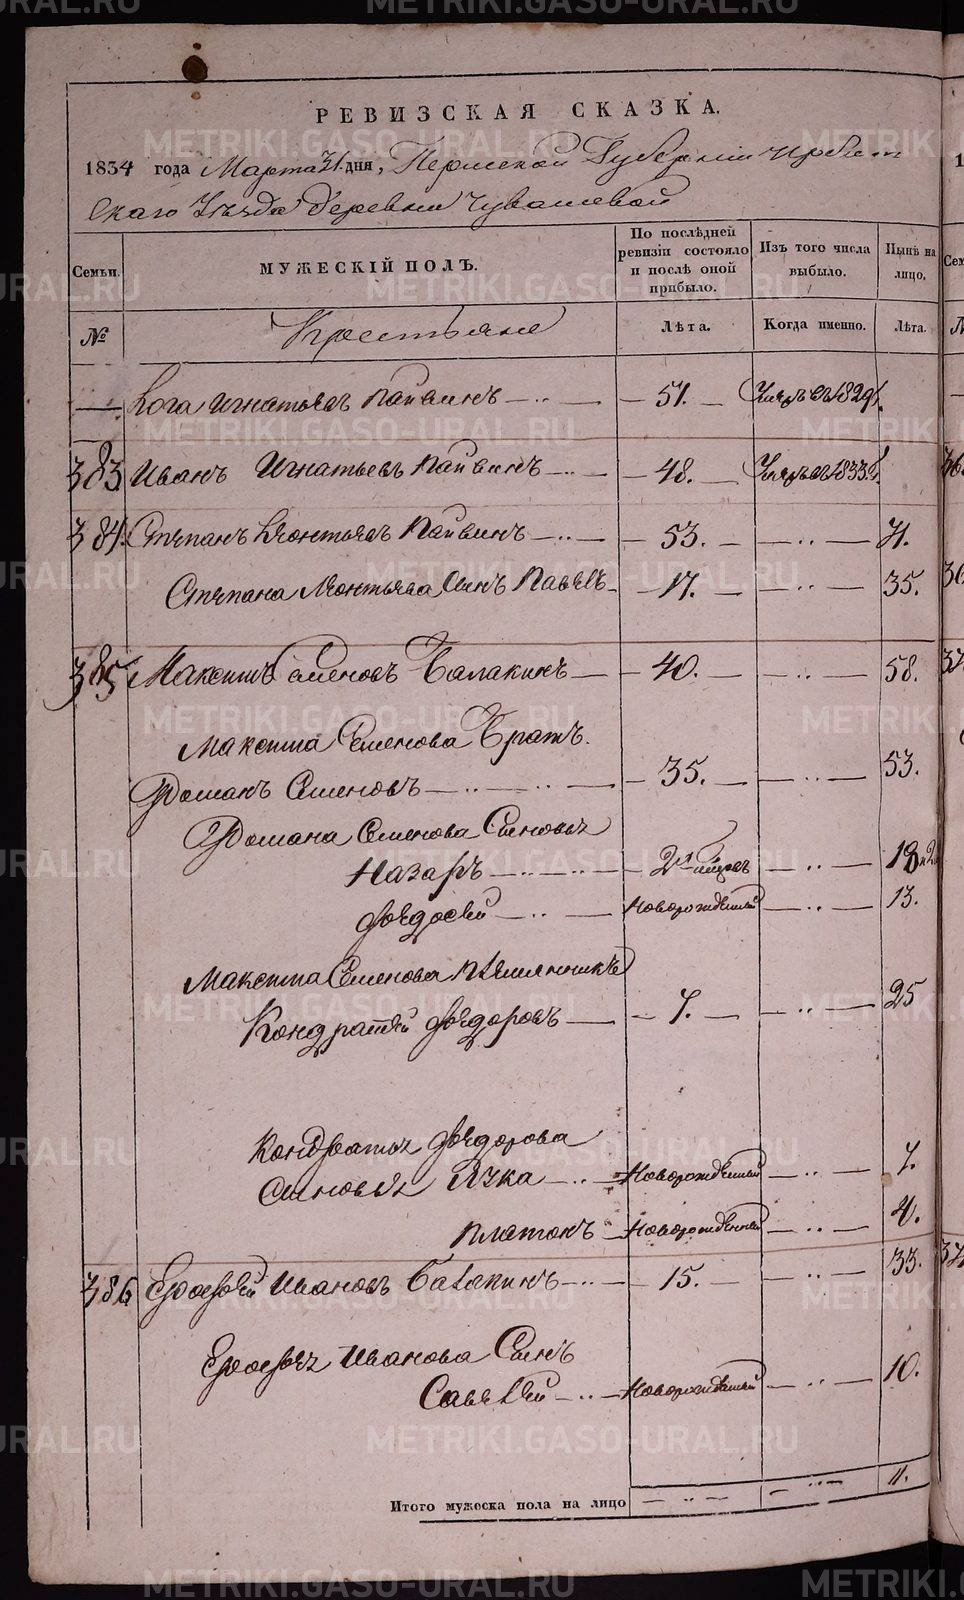 РЕВИЗСКАЯ СКАЗКА.
1834 года Марта 31 дня, Пермской Губерніи Ирбит
скаго Уѣзда деревни Чувашевой
Семьи. МУЖЕСКІЙ ПОЛЪ. По послѣдней ревизіи состояло и послѣ оной прибыло. Изъ того числа выбыло. Нынѣ на лицо.
№ Крестьяне Лѣта. Когда именно. Лѣта.
— Игнатьевъ Пайвинъ — 51. — Умре въ 1829 г.
383 Иванъ Игнатьевъ Пайвинъ — 48. — Умре въ 1833 г.
384. Степанъ Леонтьевъ Пайвинъ — 53. — 71.
Степана Леонтьева Сынъ Павелъ — 17. — 35.
385 Максимъ Семеновъ Балакинъ — 40. — 58.
Максима Семенова Братъ.
Романъ Семеновъ — 35. — 53.
Романа Семенова Сыновья
Назаръ — — 18
Федосей — Новорожденный — 13.
Максима Семенова Племянникъ
Кондратей Федоровъ — 7. — 25
Кондратья Федорова
Сыновья — Новорожденный — 7.
Платонъ — Новорожденный — 4.
386 Ерофей Ивановъ Балакинъ — 15. — 33.
Ерофея Иванова Сынъ
Савелей — Новорожденный — 10.
Итого мужеска пола на лицо — — 11.
METRIKI.GASO-URAL.RU